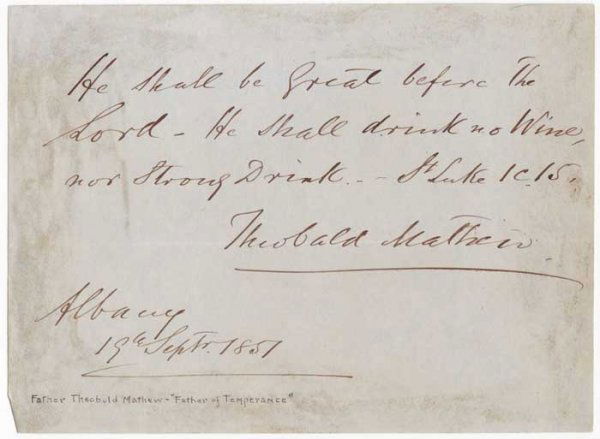 He shall be Great before The
Lord – He shall drink no Wine,
nor Strong Drink. – – St Luke 1c.15v
Theobald Mathew
Albany
19th Septr. 1851
Father Theobald Mathew – "Father of Temperance"